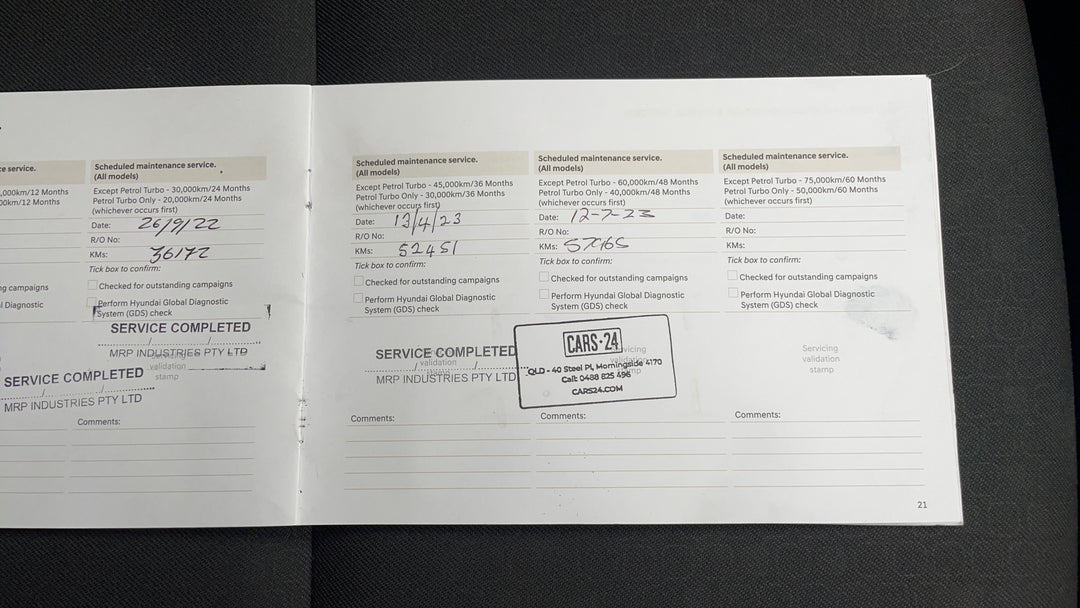 ce service.
,000km/12 Months
0km/12 Months
ng campaigns
l Diagnostic
SERVICE COMPLETED
MRP INDUSTRIES PTY LTD
Scheduled maintenance service.
(All models)
Except Petrol Turbo - 30,000km/24 Months
Petrol Turbo Only - 20,000km/24 Months
(whichever occurs first)
Date: 26/9/22
R/O No:
KMs: 36172
Tick box to confirm:
Checked for outstanding campaigns
Perform Hyundai Global Diagnostic
System (GDS) check
SERVICE COMPLETED
MRP INDUSTRIES PTY LTD
validation
stamp
Comments:
Scheduled maintenance service.
(All models)
Except Petrol Turbo - 45,000km/36 Months
Petrol Turbo Only - 30,000km/36 Months
(whichever occurs first)
Date: 13/4/23
R/O No:
KMs: 52451
Tick box to confirm:
Checked for outstanding campaigns
Perform Hyundai Global Diagnostic
System (GDS) check
SERVICE COMPLETED
validation
MRP INDUSTRIES PTY LTD
Comments:
Scheduled maintenance service.
(All models)
Except Petrol Turbo - 60,000km/48 Months
Petrol Turbo Only - 40,000km/48 Months
(whichever occurs first)
Date: 12-7-23
R/O No:
KMs: 57965
Tick box to confirm:
Checked for outstanding campaigns
Perform Hyundai Global Diagnostic
System (GDS) check
CARS·24
QLD - 40 Steel Pl, Morningside 4170
Call: 0488 825 496
CARS24.COM
Comments:
Scheduled maintenance service.
(All models)
Except Petrol Turbo - 75,000km/60 Months
Petrol Turbo Only - 50,000km/60 Months
(whichever occurs first)
Date:
R/O No:
KMs:
Tick box to confirm:
Checked for outstanding campaigns
Perform Hyundai Global Diagnostic
System (GDS) check
Servicing
validation
stamp
Comments:
21